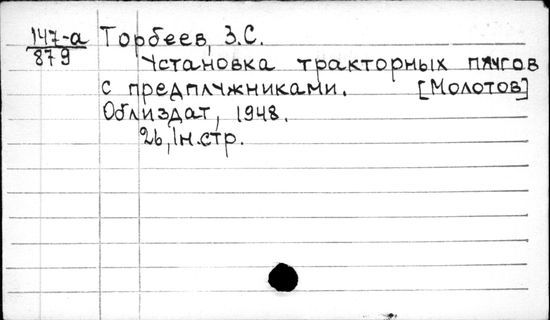 147-а
879
Торбеев, З.С.
Установка тракторных плугов
с предплужниками. [Молотов]
Облиздат, 1948.
26, 1н.стр.